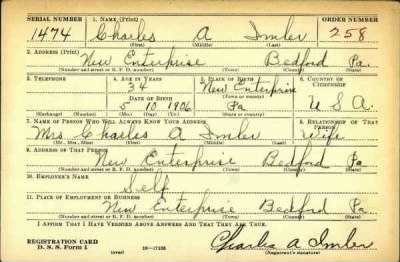 SERIAL NUMBER 1. NAME (Print) ORDER NUMBER
1474 Charles A Imler 258
(First) (Middle) (Last)
2. ADDRESS (Print)
New Enterprise Bedford Pa.
(Number and street or R. F. D. number) (Town) (County) (State)
3. TELEPHONE 4. AGE IN YEARS 5. PLACE OF BIRTH 6. COUNTRY OF CITIZENSHIP
34 New Enterprise
DATE OF BIRTH (Town or county)
5 10 1906 Pa U.S.A.
(Exchange) (Number) (Mo.) (Day) (Yr.) (State or country)
7. NAME OF PERSON WHO WILL ALWAYS KNOW YOUR ADDRESS 8. RELATIONSHIP OF THAT PERSON
Mrs Charles A Imler Wife
(Mr., Mrs., Miss) (First) (Middle) (Last)
9. ADDRESS OF THAT PERSON
New Enterprise Bedford Pa
(Number and street or R. F. D. number) (Town) (County) (State)
10. EMPLOYER'S NAME
Self
11. PLACE OF EMPLOYMENT OR BUSINESS
New Enterprise Bedford Pa.
(Number and street or R. F. D. number) (Town) (County) (State)
I AFFIRM THAT I HAVE VERIFIED ABOVE ANSWERS AND THAT THEY ARE TRUE.
REGISTRATION CARD
D. S. S. Form 1 (over) 16—17105 Charles A Imler
(Registrant's signature)